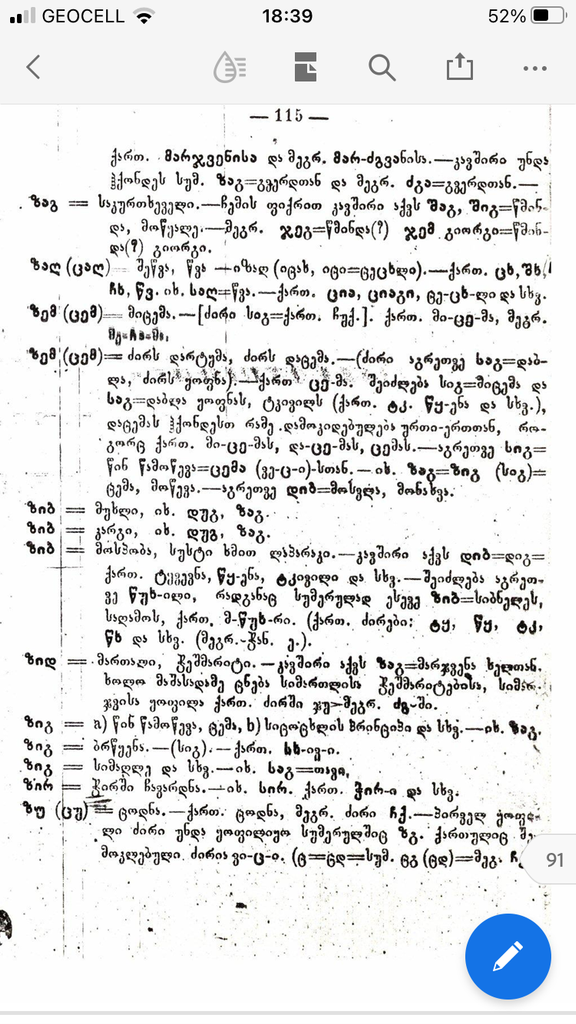 GEOCELL 18:39 52%
— 115 —
ქართ. მარჯვენისა და მეგრ. მარ-ძგვანისა.—კავშირი უნდა
ჰქონდეს სუმ. ზაგ=გვერდთან და მეგრ. ძგა=გვერდთან.—
ზაგ = საკურთხეველი.—ჩემის ფიქრით კავშირი აქვს შაგ, შიგ=წმინ-
და, მოწყალე.—მეგრ. ჯეგ=წმინდა(?) ჯემ გიორგი=წმინ-
და(?) გიორგი.
ზალ (ცალ) შეწვა, წვა —იზალ (იცახ, იცი=ცეცხლი).—ქართ. ცხ, შხ,
ჩხ, წვ. იხ. სალ=წვა.—ქართ. ცია, ციაგი, ცე-ცხ-ლი და სხვ.
ზემ (ცემ)= მიცემა.—[ძირი სიგ=ქართ. ჩუქ.]. ქართ. მი-ცე-მა, მეგრ.
ზემ (ცემ)= ძირს დარტყმა, ძირს დაცემა.—(ძირი აგრეთვე საგ=დაბ-
ლა, ძირს ყოფნა).—ქართ ცე-მა. შეიძლება სიგ=მიცემა და
საგ=დაბლა ყოფნას, ტკივილს (ქართ. ტკ. წყ-ენა და სხვ.),
დაცემას ჰქონდესთ რამე დამოკიდებულება ურთი-ერთთან, რო-
გორც ქართ. მი-ცე-მას, და-ცე-მას, ცემას.—აგრეთვე სიგ=
წინ წამოწევა=ცემა (ვე-ც-ი)-სთან.—იხ. ზაგ=ზიგ (სიგ)=
ცემა, მოწევა.—აგრეთვე დიბ=მოსვლა, მონახვა.
ზიბ = მუხლი, იხ. დუგ, ზაგ.
ზიბ = კარგი, იხ. დუგ, ზაგ.
ზიბ = მოსპობა, სუსტი ხმით ლაპარაკი.—კავშირი აქვს დიბ=დიგ=
ქართ. ტყვევნა, წყ-ენა, ტკივილი და სხვ.—შეიძლება აგრეთ-
ვე წუხ-ილი, რადგანაც სუმერულად ესევე ზიბ=სიბნელეს,
საღამოს, ქართ. მ-წუხ-რი. (ქართ. ძირები: ტყ, წყ, ტკ,
წხ და სხვ. (მეგრ.-ჭან. ე.).
ზიდ = მართალი, ჭეშმარიტი.—კავშირი აქვს ზაგ=მარჯვენა ხელთან.
ხოლო მაშასადამე ცნება სიმართლისა ჭეშმარიტებისა, სიმარ-
ჯვისა ყოფილა ქართ. ძირში ჯუ>მეგრ. ძგ-ში.
ზიგ = a) წინ წამოწევა, ცემა, b) სიცოცხლის პრინციპი და სხვ.—იხ. ზაგ.
ზიგ = ბრწყენს.—(სიგ).—ქართ. სხ-ივ-ი.
ზიგ = სიმაღლე და სხვ.—იხ. საგ=თავი,
ზირ = ჭირში ჩავარდნა.—იხ. სირ. ქართ. ჭირ-ი და სხვ.
ზუ (ცუ) = ცოდნა.—ქართ. ცოდნა, მეგრ. ძირი ჩქ.—პირველ ყოფი-
ლი ძირი უნდა ყოფილიყო სუმერულშიც ზგ. ქართულიც შე-
მოკლებული. ძირია ვი-ც-ი. (ც=ცდ=სუმ. ცგ (ცდ)=მეგ.
91